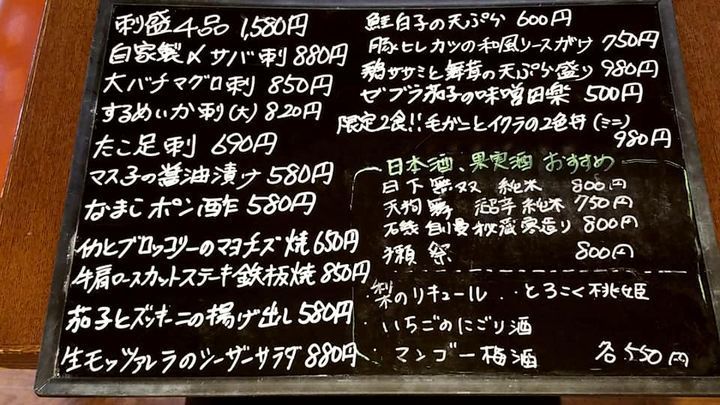 刺盛4品 1,580円
自家製〆サバ刺 880円
大バチマグロ刺 850円
するめいか刺(大) 820円
たこ足刺 690円
マス子の醤油漬け 580円
なまこポン酢 580円
イカとブロッコリーのマヨチーズ焼 650円
牛肩ロースカットステーキ鉄板焼 850円
茄子とズッキーニの揚げ出し 580円
生モッツァレラのシーザーサラダ 880円
鮭白子の天ぷら 600円
豚ヒレカツの和風ソースがけ 750円
鶏ササミと舞茸の天ぷら盛り 980円
ゼブラ茄子の味噌田楽 500円
限定2食!!毛ガニとイクラの2色丼(ミニ)
980円
日本酒、果実酒 おすすめ
日下無双 純米 800円
天狗舞 超辛純米 750円
石鎚 自慢秘蔵寒造り 800円
獺祭 800円
・梨のリキュール ・とろこく桃姫
・いちごのにごり酒
・マンゴー梅酒 各550円